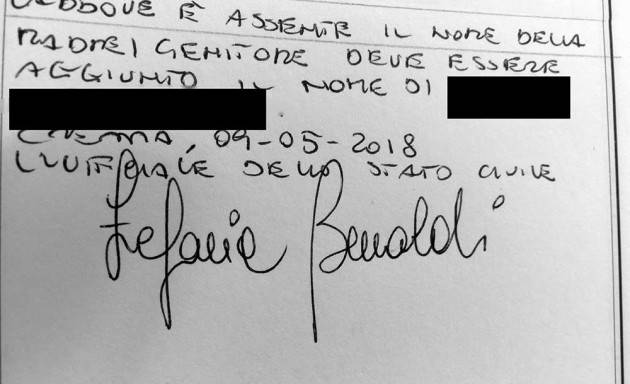 LADDOVE È ASSENTE IL NOME DELLA
MADRE/GENITORE DEVE ESSERE
AGGIUNTO IL NOME DI
CREMA, 09-05-2018
L'UFFICIALE DELLO STATO CIVILE
Stefania Bonaldi